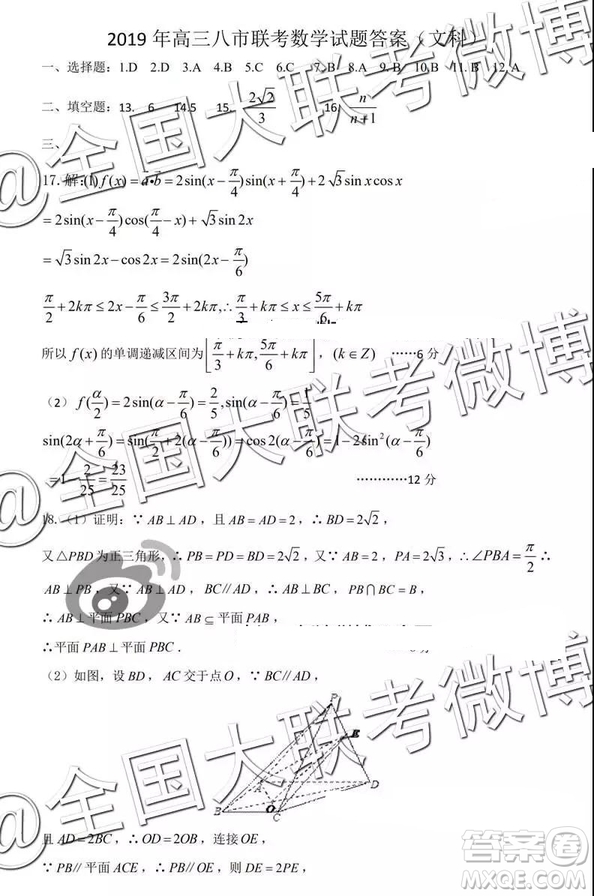 2019 年高三八市联考数学试题答案（文科）
一、选择题：1.D 2.D 3.A 4.B 5.C 6.C 7.B 8.A 9.B 10.A 11.B 12.A
二、填空题：13. 6 14.5 15. 2√2/3 16. n/(n+1)
三、
17. 解:(1) f(x)=a•b=2sin(x−π/4)sin(x+π/4)+2√3 sin x cos x
=2sin(x−π/4)cos(π/4−x)+√3 sin 2x
=√3 sin 2x−cos 2x=2sin(2x−π/6)
π/2+2kπ≤2x−π/6≤3π/2+2kπ,∴π/3+kπ≤x≤5π/6+kπ
所以 f(x) 的单调递减区间为[π/3+kπ,5π/6+kπ]，(k∈Z) ……6 分
（2） f(α/2)=2sin(α−π/6)=2/5,sin(α−π/6)=1/5
sin(2α+π/6)=sin(π/2+2(α−π/6))=cos2(α−π/6)=1−2sin²(α−π/6)
=1−2/25=23/25 …………12 分
18.（1）证明：∵ AB⊥AD，且 AB=AD=2，∴ BD=2√2，
又△PBD 为正三角形，∴ PB=PD=BD=2√2，又∵ AB=2，PA=2√3，∴∠PBA=π/2 ∴
AB⊥PB，又∵ AB⊥AD，BC//AD，∴ AB⊥BC，PB∩BC=B，
∴ AB⊥平面 PBC，又∵ AB⊆平面 PAB，
∴平面 PAB⊥平面 PBC．
（2）如图，设 BD，AC 交于点 O，∵ BC//AD，
P
E
D
B
O
C
且 AD=2BC，∴ OD=2OB，连接 OE，
∵ PB//平面 ACE，∴ PB//OE，则 DE=2PE，
@全国大联考微博
@全国大联考微博
@全国大联考微博
答案圈
MXQE.COM